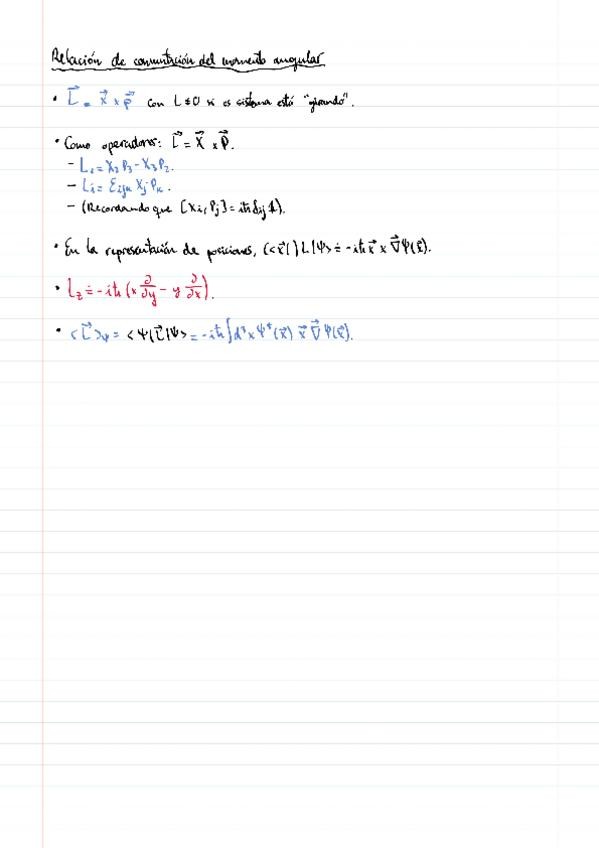 Relación de conmutación del momento angular
• L⃗ = x⃗ × p⃗ con L≠0 si es sistema está "girando".
• Como operadores: L⃗ = X⃗ × P⃗.
- L₁ = X₂P₃ - X₃P₂.
- Li = εijk Xj Pk.
- (Recordando que [Xi, Pj] = iħδij 𝟙).
• En la representación de posiciones, (<x⃗|) L|Ψ> ≐ -iħ x⃗ × ∇⃗Ψ(x⃗).
• Lz ≐ -iħ (x ∂/∂y - y ∂/∂x).
• <L⃗>Ψ = <Ψ|L⃗|Ψ> = -iħ∫d³x Ψ*(x⃗) x⃗ ∇⃗ Ψ(x⃗).